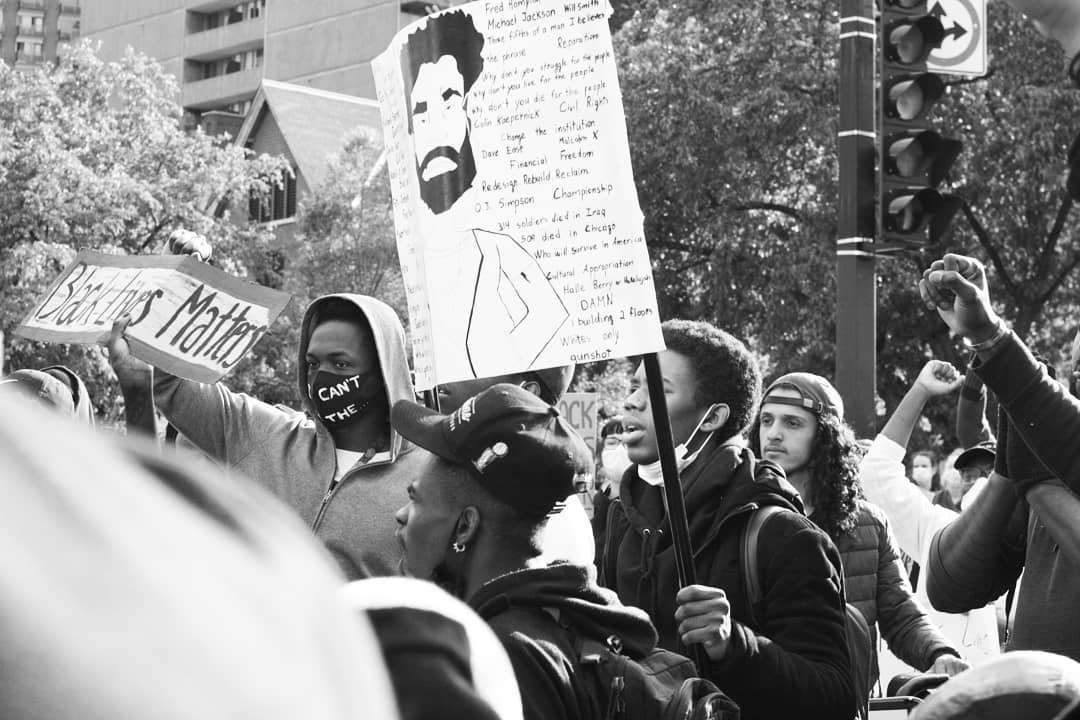 Fred Hampton
Michael Jackson Will Smith
Three fifths of a man I believe's
the phrase Reparations
Why don't you struggle for the people
why don't you live for the people
why don't you die for the people
Colin Kaepernick Civil Rights
Change the institution
Dave East Malcolm X
Financial Freedom
Redesign. Rebuild. Reclaim
O.J. Simpson Championship
314 soldiers died in Iraq
509 died in Chicago
Who will survive in America
Cultural Appropriation
Halle Berry or Hallelujah
DAMN
1 building 2 floors
Whites only
gunshot
Black lives Matters
CAN'T
THE
OCK